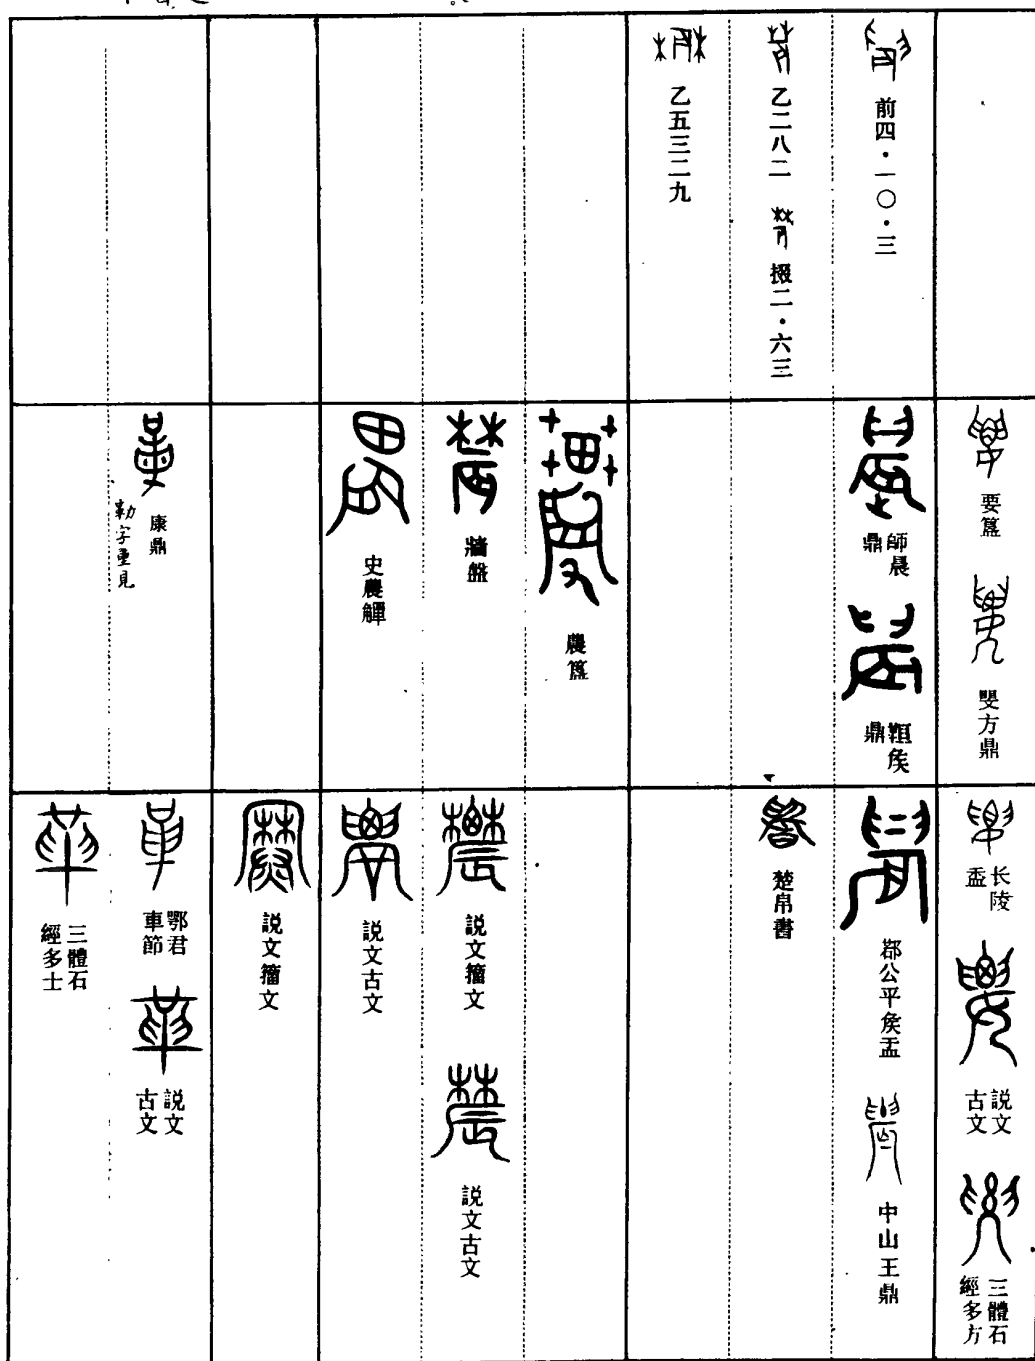 前四·一〇·三
乙二八二
掇二·六三
乙五三二九
要簋
㛐方鼎
師晨
鼎
䩭侯
鼎
農簋
牆盤
史農觶
康鼎
勒字重見
长陵
盉
説文
古文
三體石
經多方
鄀公平侯盂
中山王鼎
楚帛書
説文籀文
説文古文
説文古文
説文籀文
鄂君
車節
説文
古文
三體石
經多士